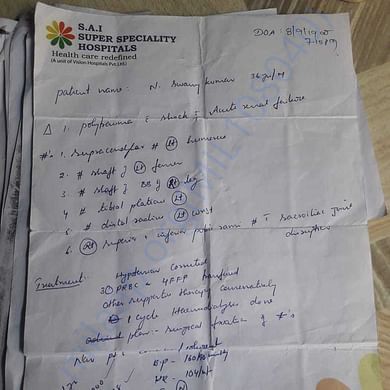 S.A.I
SUPER SPECIALITY
HOSPITALS
Health care redefined
(A unit of Vision Hospitals Pvt.Ltd.)
DOA: 8/9/19
patient name: N. Swamy kumar 36 yr/M
Δ 1. polytrauma c shock c Acute renal failure
#'s 1. supracondylar # Lt humerus
2. # shaft of Lt femur
3. # shaft of BB of leg
4 # tibial plateau Lt
5 # distal radius Lt wrist
6. Rt superior inferior pubic rami # sacroiliac joint
disruption
Treatment: Hypotension corrected
3 PRBC & 4 FFP transfused
other supportive therapy conservatively
1 cycle Haemodialysis done
plan:- surgical fixation of #'s
Now pt's conscious /
B.P -
HR - 104/